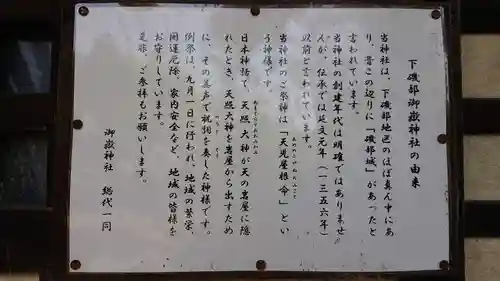 下磯部御嶽神社の由来
当神社は、下磯部地区のほぼ真ん中にあ
り、昔この辺りに「磯部城」があったと
言われています。
当神社の創建年代は明確ではありませ
んが、伝承では延文元年(一三五六年)
以前と言われています。
当神社のご祭神は「天児屋根命」とい
う神様です。
日本神話で、天照大神が天の岩屋に隠
れたとき、天照大神を岩屋から出すため
に、その美声で祝詞を奏した神様です。
例祭は、九月一日に行われ、地域の繁栄、
開運厄除、家内安全など、地域の皆様を
お守りしています。
是非、ご参拝もお願いします。
御嶽神社 総代一同